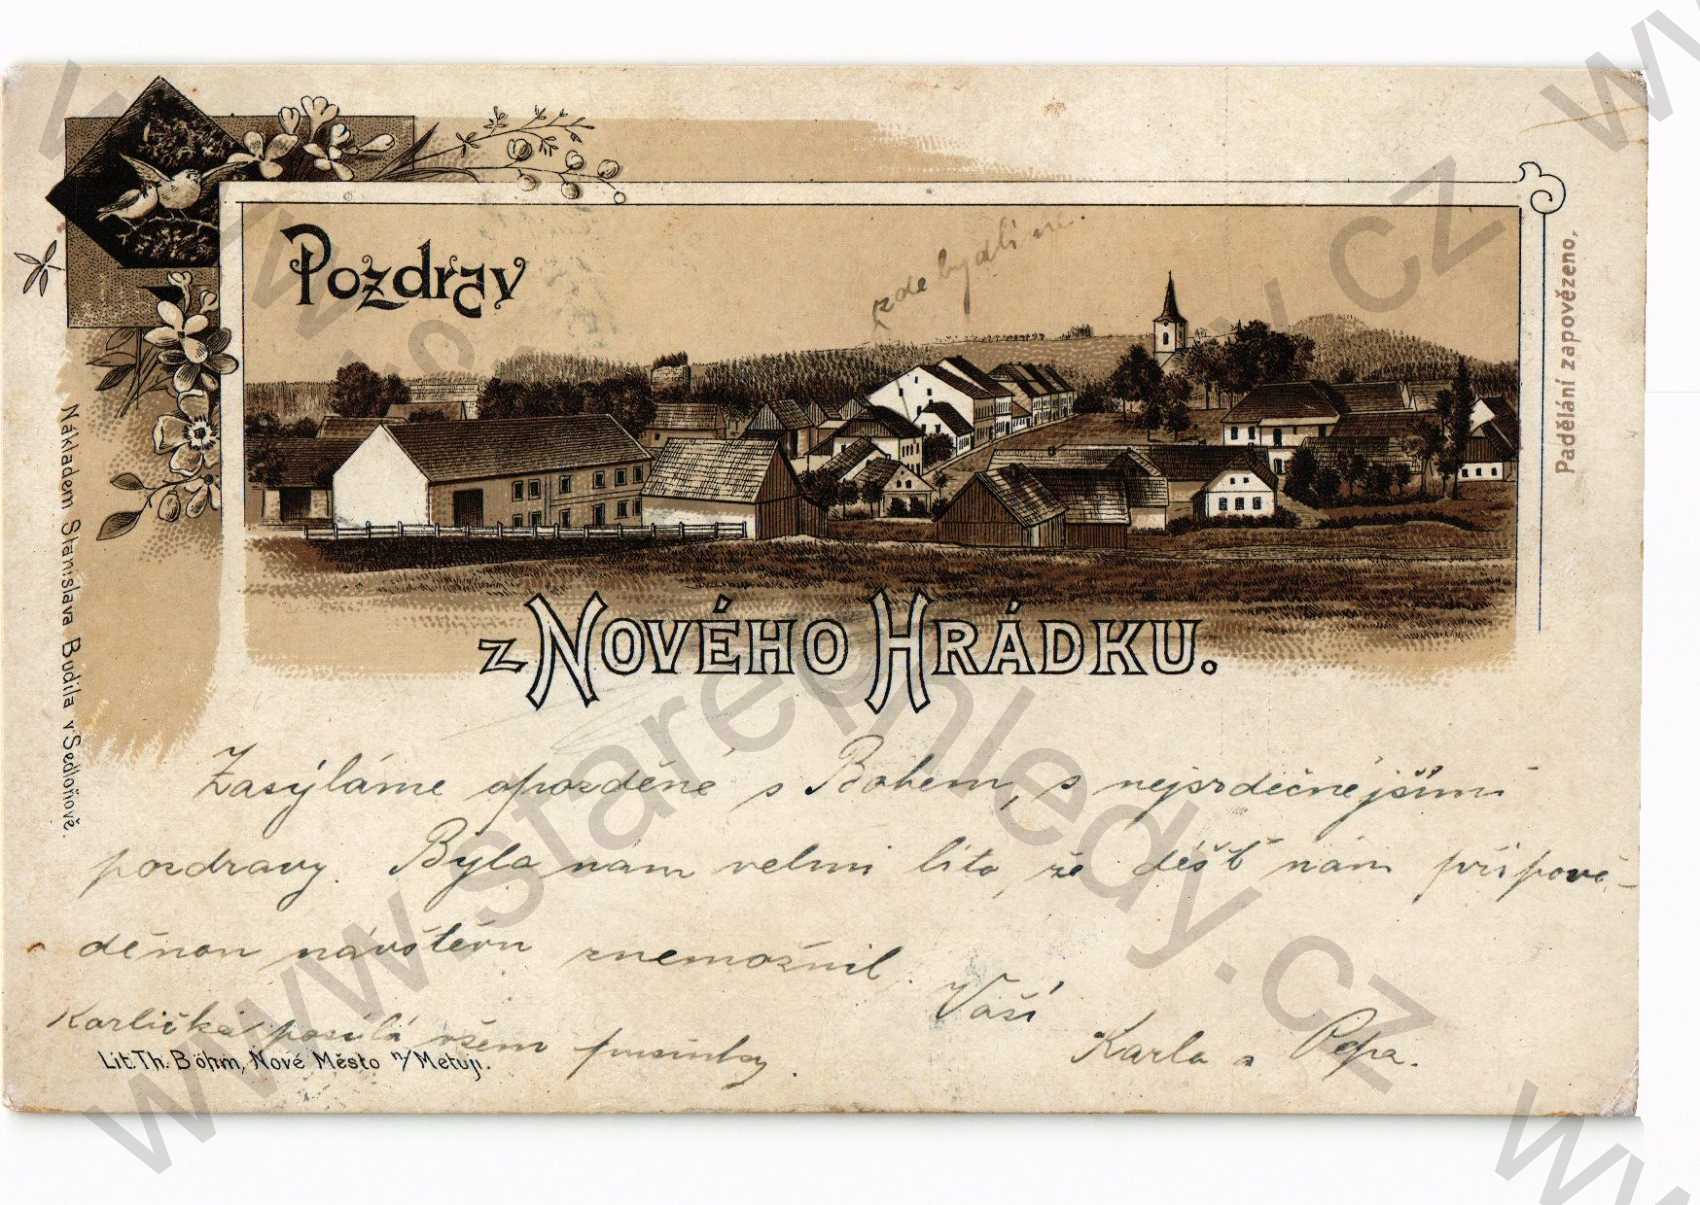 Pozdrav
zde bydlíme.
z Nového Hrádku.
Padělání zapovězeno.
Nákladem Stanislava Budila v Sedloňově.
Zasýláme opozděné s Bohem, s nejsrdečnějšími
pozdravy. Bylo nám velmi líto, že déšť nám připově-
děnou návštěvu znemožnil.
Vaši
Karla a Pepa.
Karlička posílá všem pusinky.
Lit. Th. Böhm, Nové Město n/Metují.
www.starepohledy.cz